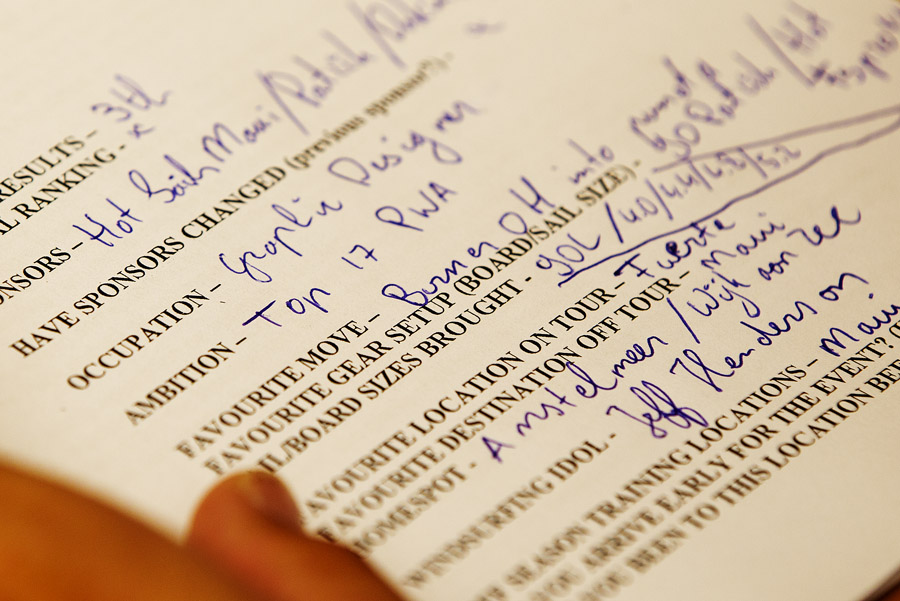 RESULTS – 3th
AL RANKING - x
ONSORS – Hot Sails Maui/Patrik/
HAVE SPONSORS CHANGED (previous sponsor*) -
OCCUPATION – Graphic Designer
AMBITION – Top 17 PWA
FAVOURITE MOVE – Burner OH into
FAVOURITE GEAR SETUP (BOARD/SAIL SIZE) – Patrik/Hot
IL/BOARD SIZES BROUGHT - 90L/4.0/4.4/4.8/5.2
AVOURITE LOCATION ON TOUR – Fuerte
FAVOURITE DESTINATION OFF TOUR – Maui
HOMESPOT - Amstelmeer/Wijk aan Zee
WINDSURFING IDOL - Jeff Henderson
SEASON TRAINING LOCATIONS – Maui
OU ARRIVE EARLY FOR THE EVENT?
OU BEEN TO THIS LOCATION BE